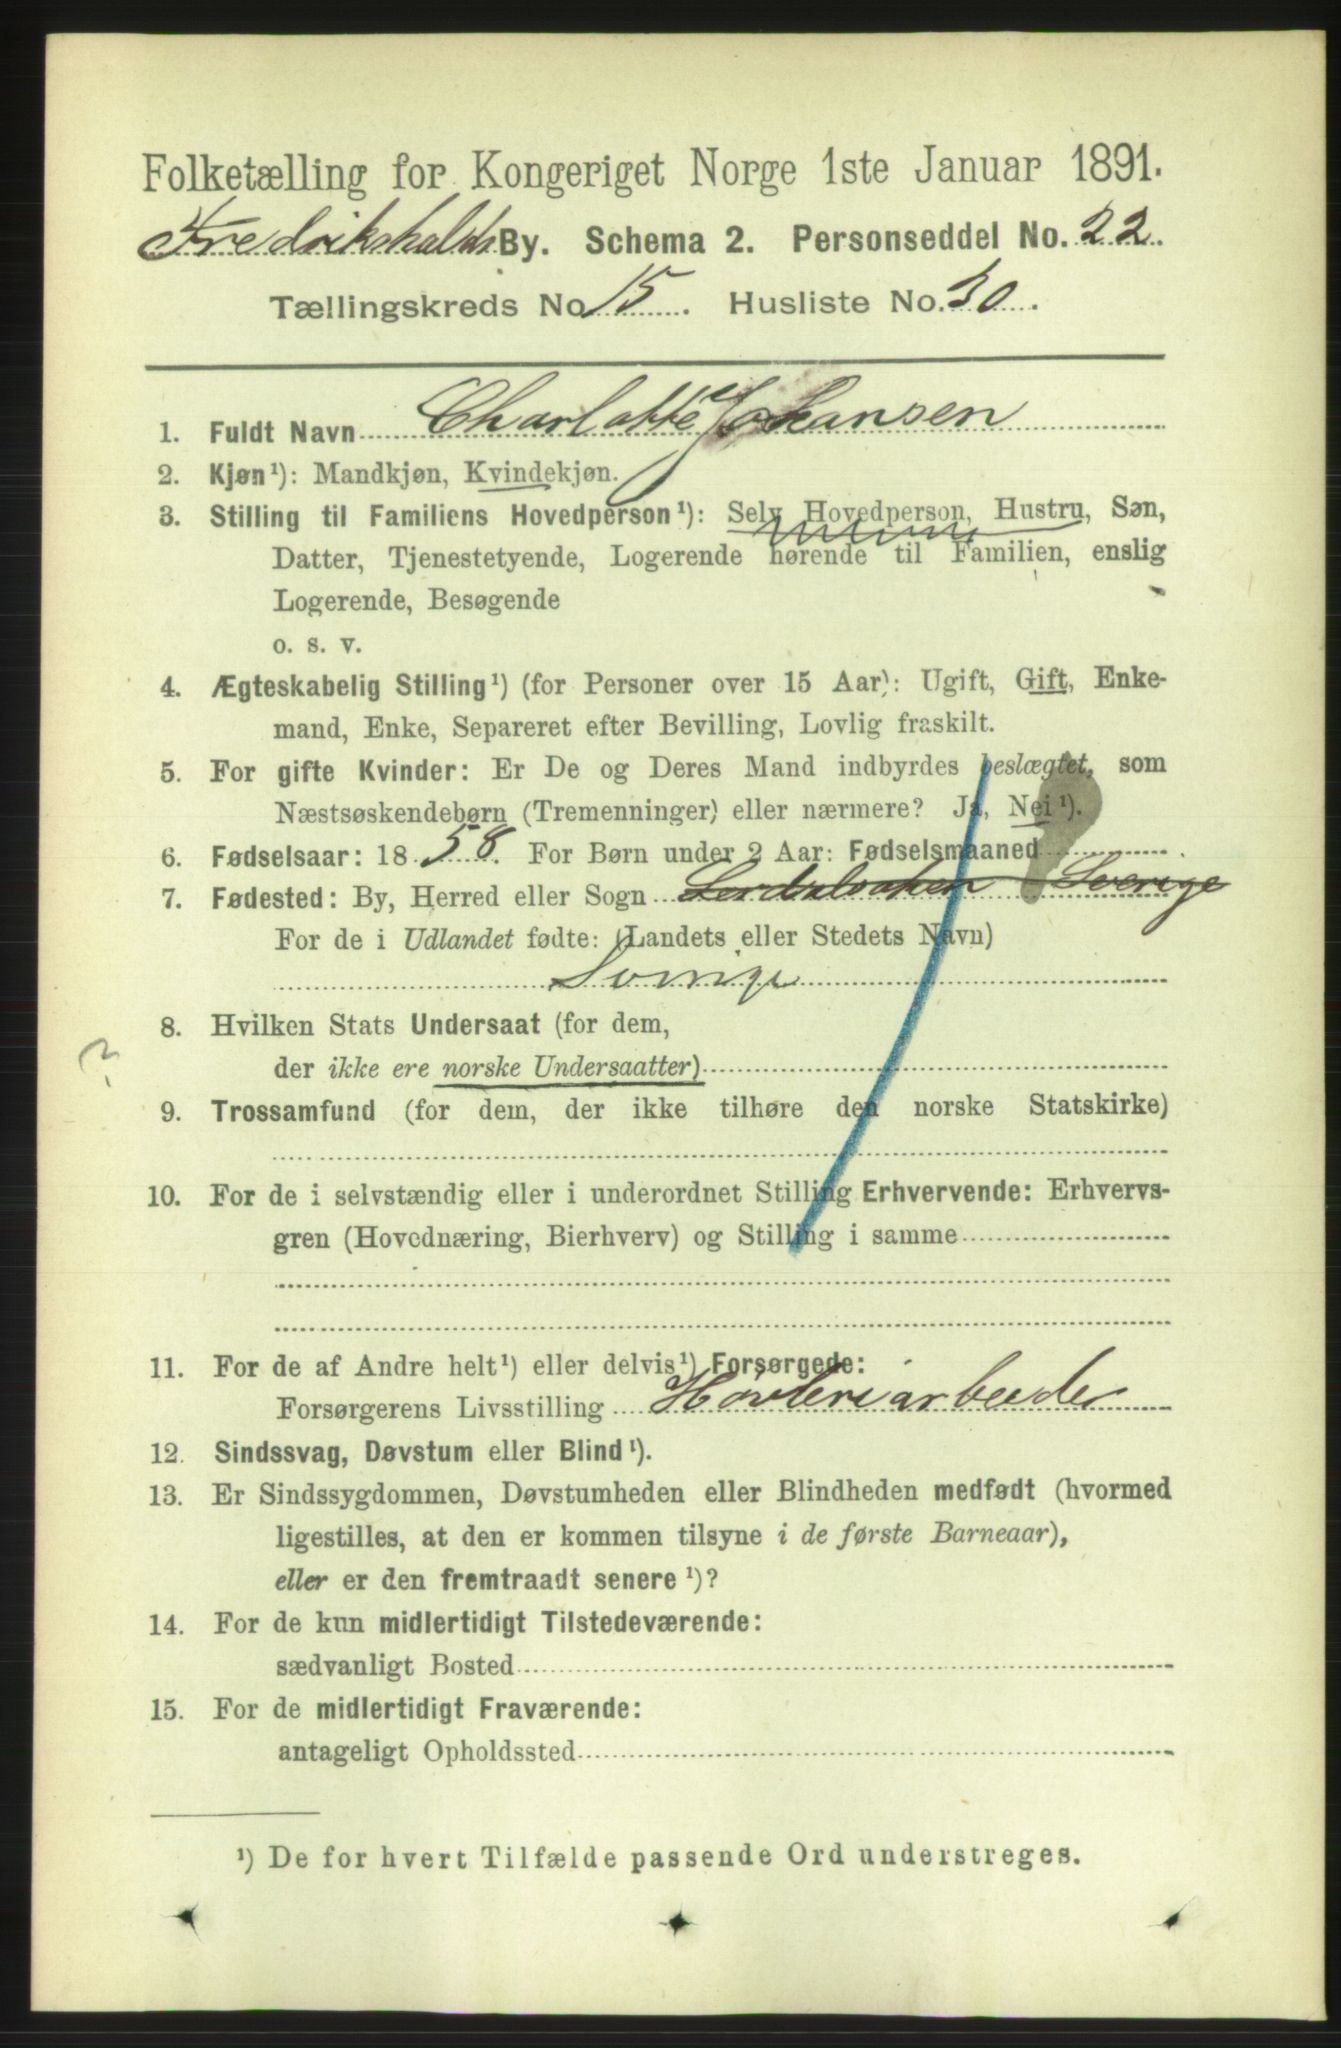 Folketælling for Kongeriget Norge 1ste Januar 1891.
Fredrikshalds By. Schema 2. Personseddel No. 22.
Tællingskreds No 15. Husliste No. 30.
1. Fuldt Navn Charlotte Johansen
2. Kjøn¹): Mandkjøn, Kvindekjøn.
3. Stilling til Familiens Hovedperson¹): Selv Hovedperson, Hustru, Søn,
Datter, Tjenestetyende, Logerende hørende til Familien, enslig
Logerende, Besøgende
o. s. v.
4. Ægteskabelig Stilling¹) (for Personer over 15 Aar): Ugift, Gift, Enke-
mand, Enke, Separeret efter Bevilling, Lovlig fraskilt.
5. For gifte Kvinder: Er De og Deres Mand indbyrdes beslægtet, som
Næstsøskendebørn (Tremenninger) eller nærmere? Ja, Nei¹).
6. Fødselsaar: 1858. For Børn under 2 Aar: Fødselsmaaned
7. Fødested: By, Herred eller Sogn Sverige
For de i Udlandet fødte: (Landets eller Stedets Navn)
Sverige
8. Hvilken Stats Undersaat (for dem,
der ikke ere norske Undersaatter)
?
9. Trossamfund (for dem, der ikke tilhøre den norske Statskirke)
10. For de i selvstændig eller i underordnet Stilling Erhvervende: Erhvervs-
gren (Hovednæring, Bierhverv) og Stilling i samme
11. For de af Andre helt¹) eller delvis¹) Forsørgede:
Forsørgerens Livsstilling Høvleriarbeider
12. Sindssvag, Døvstum eller Blind¹).
13. Er Sindssygdommen, Døvstumheden eller Blindheden medfødt (hvormed
ligestilles, at den er kommen tilsyne i de første Barneaar),
eller er den fremtraadt senere¹)?
14. For de kun midlertidigt Tilstedeværende:
sædvanligt Bosted
15. For de midlertidigt Fraværende:
antageligt Opholdssted
¹) De for hvert Tilfælde passende Ord understreges.